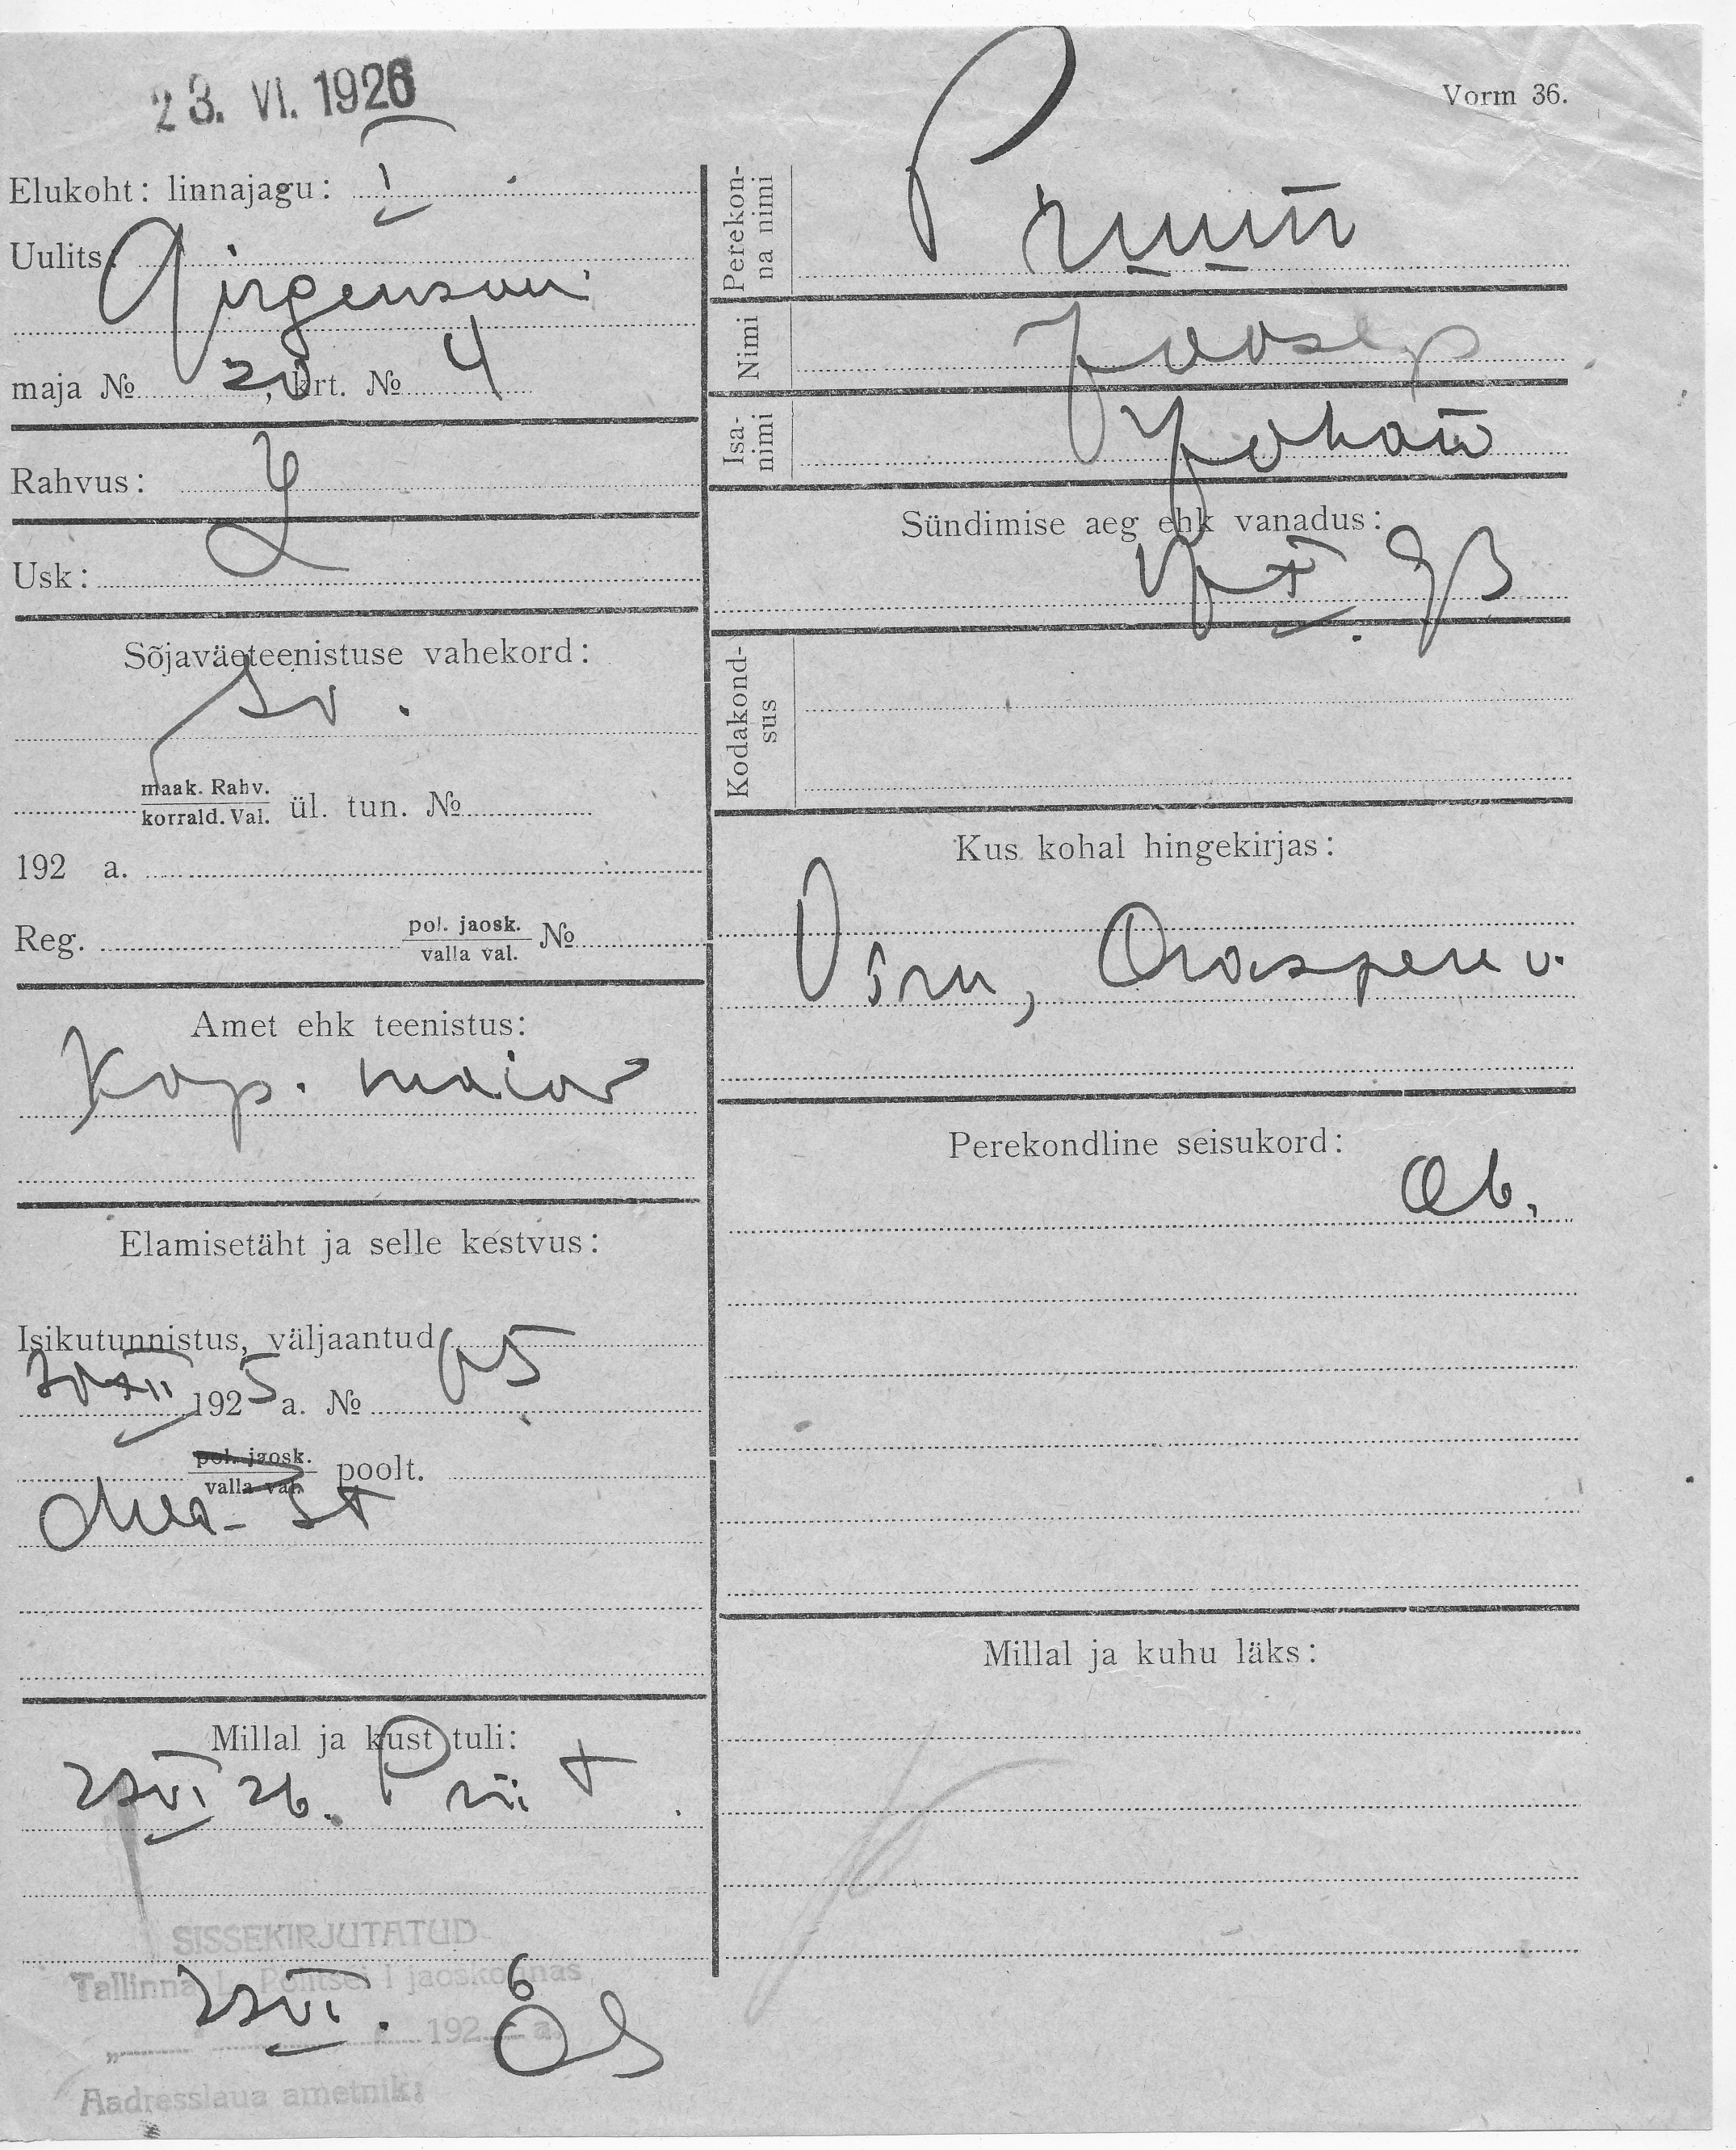 23. VI. 1926
Vorm 36.
Elukoht: linnajagu: I
Uulits: Girgensoni
maja № 20, krt. № 4
Rahvus:
Usk:
Sõjaväeteenistuse vahekord:
sv.
maak. Rahv.
korrald. Val. ül. tun. №
192 a.
Reg. pol. jaosk.
valla val. №
Amet ehk teenistus:
Kap. maior
Elamisetäht ja selle kestvus:
Isikutunnistus, väljaantud
XII 1925 a. №
pol. jaosk.
valla val. poolt.
Millal ja kust tuli:
23 VI 26. Prii t
SISSEKIRJUTATUD
Tallinna L. Politsei I jaoskonnas
„ 23 VI. 1926 a.
Aadresslaua ametnik:
Perekonna nimi
Pruun
Nimi
Joosep
Isanimi
Johan
Sündimise aeg ehk vanadus:
X 93
Kodakondsus
Kus kohal hingekirjas:
Võru, Oraspere v.
Perekondline seisukord:
Ab.
Millal ja kuhu läks: